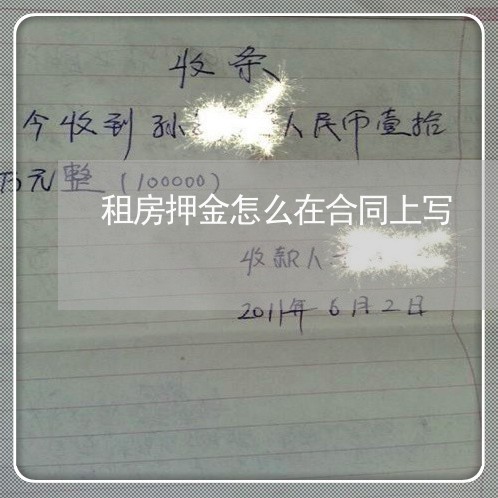 收条
今收到孙 人民币壹拾
万元整(100000)
租房押金怎么在合同上写
收款人
2011年6月2日